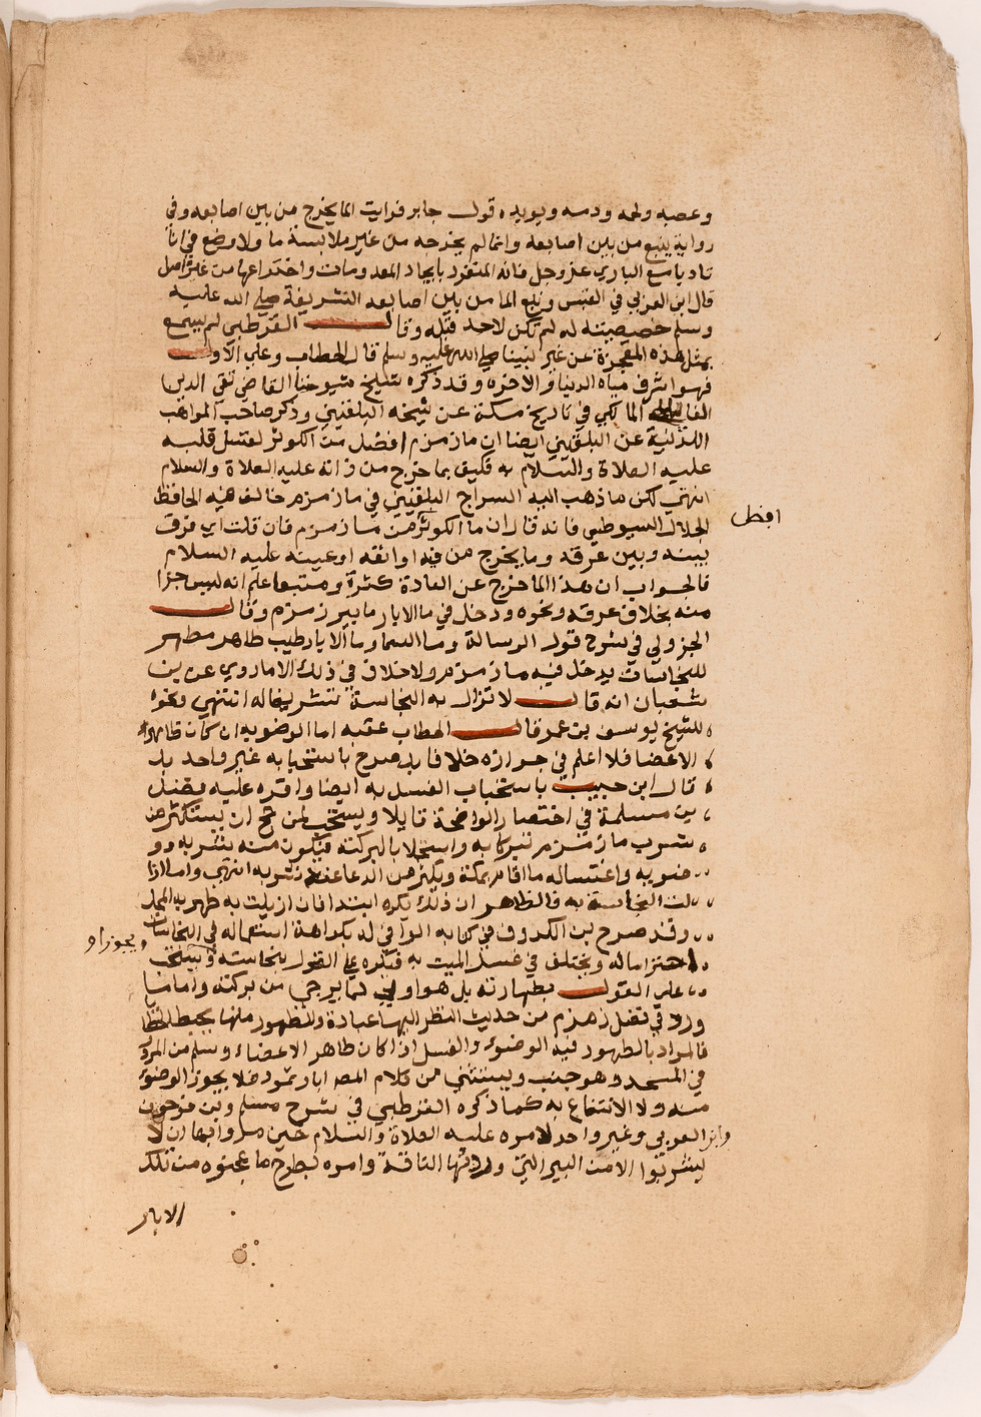 وعصبه ولحمه ودمه ويويده قول جابر فرايت الما يخرج من بين اصابعه وفي
رواية ينبع من بين اصابعه وانما لم يخرجه من غير ملابسة ما ولا وضع في انا
تادبا مع الباري عز وجل فانه المتفرد بايجاد المعدومات واختراعها من غير اصل
قال ابن العربي في القبس ونبع الما من بين اصابعه الشريفة صلي الله عليه
وسلم خصيصية له لم تكن لاحد قبله وقال القرطبي لم يسمع
بمثل هذه المعجزة عن غير نبينا صلي الله عليه وسلم قال الحطاب وعلي الاول
فهو اشرف مياه الدنيا والاخره وقد ذكره شيخ شيوخنا القاضي تقي الدين
الفاسي المالكي في تاريخ مكة عن شيخه البلقيني وذكر صاحب المواهب
اللدنية عن البلقيني ايضا ان ما زمزم افضل من الكوثر لغسل قلبه
عليه الصلاة والسلام به فكيف بما خرج من ذاته عليه الصلاة والسلام
انتهي لكن ما ذهب اليه السراج البلقيني في ما زمزم خالفه فيه الحافظ
الجلال السيوطي فانه قال ان ما الكوثر من ما زمزم فان قلت اي فرق
افضل
بينه وبين عرقه وما يخرج من فيه او انفه او عينه عليه السلام
فالجواب ان هذا الما خرج عن العادة كثرة ومنبعا علم انه ليس جزا
منه بخلاف عرقه ونحوه ودخل في ما الابار ما بير زمزم وقال
الجزولي في شرح قول الرسالة وما السما وما الابار طيب طاهر مطهر
للنجاسات يدخل فيه ما زمزم ولا خلاف في ذلك الا ما روي عن بن
شعبان انه قال لا تزال به النجاسة تشريفا له انتهي ونحوه
للشيخ يوسف بن عمر وقال الحطاب عقبه اما الوضو به ان كان طاهر
الاعضا فلا اعلم في جوازه خلافا بل صرح باستحبابه غير واحد بل
قال ابن حبيب باستحباب الغسل به ايضا واقره عليه فضل
بن مسلمة في اختصار الواضحة قايلا ويستحب لمن حج ان يستكثر من
شرب ما زمزم تبركا به واستجلابا لبركته فيكون منه شربه و
ضوبه واغتساله ما اقام بمكة ويكثر من الدعا عند شربه انتهي واما ازا
لت النجاسة به فالظاهر ان ذلك يكره ابتدا فان ازيلت به طهر به المحل
وقد صرح بن الكروف في كتابه الوافي له بكراهة استعماله في النجاسات
ويجوز او
احتراما له ويختلف في غسل الميت به فيكره علي القول بنجاسته ويستحب
علي القول بطهارته بل هو اولي لما يرجي من بركته واما ما
ورد في فضل زمزم من حديث النظر اليها عبادة والطهور منها يحبط الخطا
فالمراد بالطهور فيه الوضوء والغسل اذا كان طاهر الاعضاء وسلم من المرور
في المسجد وهو جنب ويستثني من كلام المصـ ابار ثمود فلا يجوز الوضوء
منه ولا الانتفاع به كما ذكره القرطبي في شرح مسلم وبن فرحون
وابن العربي وغير واحد لامره عليه الصلاة والسلام حين مروا بها ان لا
يشربوا الا من البير التي وردتها الناقة وامره بطرح ما عجنوه من تلك
الابار